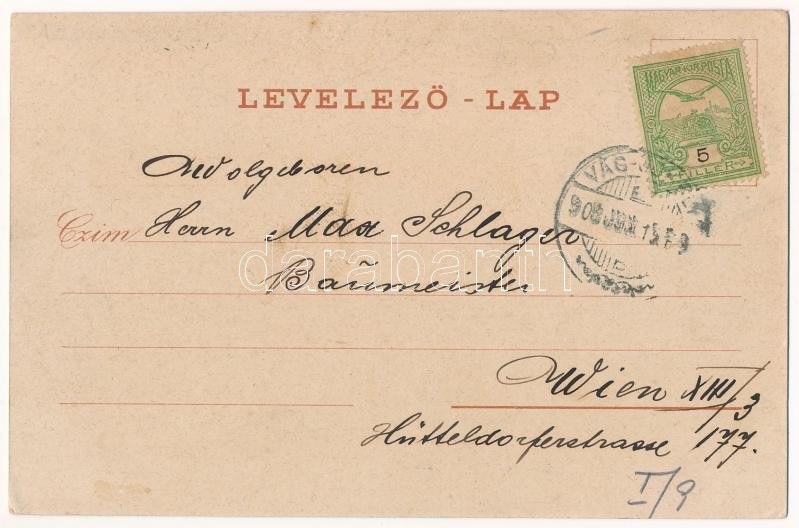 LEVELEZŐ - LAP
MAGYAR KIR. POSTA
5
FILLER
VÁG-
Wolgeboren
Czim Herrn Max Schlager
Baumeister
Wien XIII/3
Hütteldorferstrasse 177.
I/9
darabanth